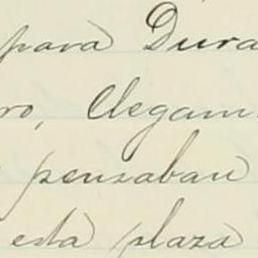 para Dura
ro, llegam
pensaban
esta plaza